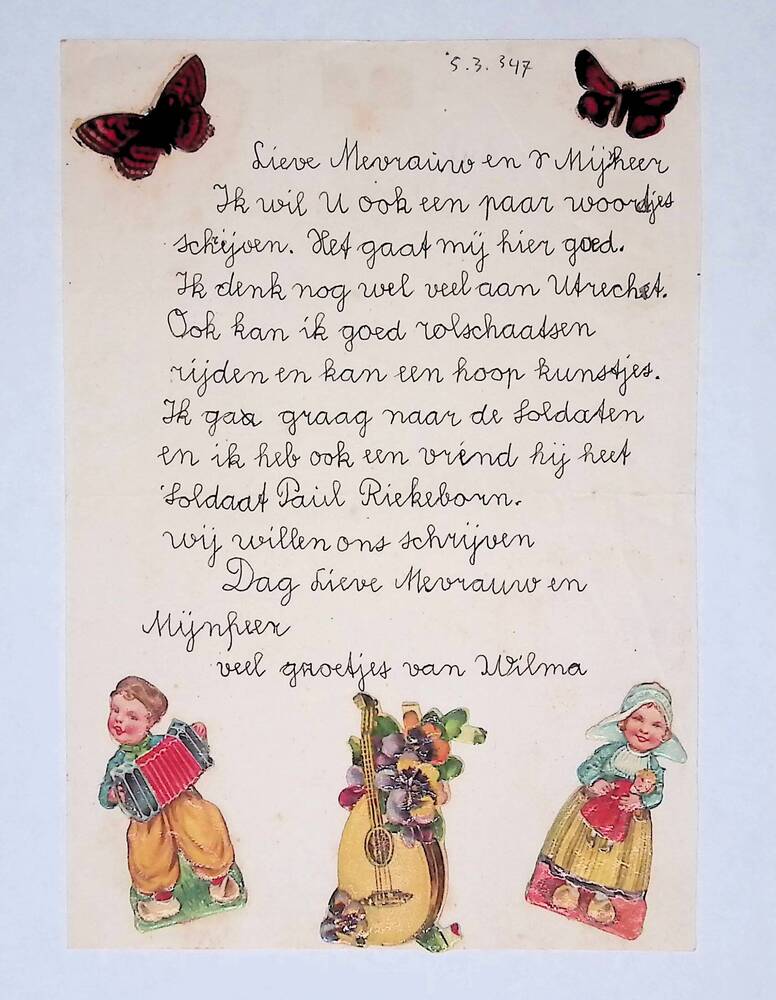 5.3.347
Lieve Mevrauw en Mijheer
Ik wil U ook een paar woordjes
schrijven. Het gaat mij hier goed.
Ik denk nog wel veel aan Utrecht.
Ook kan ik goed rolschaatsen
rijden en kan een hoop kunstjes.
Ik gaa graag naar de Soldaten
en ik heb ook een vrénd hij heet
Soldaat Paul Riekeborn.
wij willen ons schrijven
Dag Lieve Mevrauw en
Mijnheer
veel groetjes van Wilma